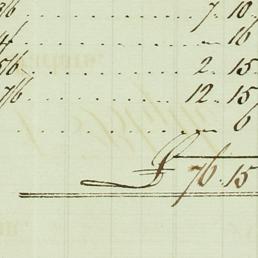 3/6 . . . . . . . . 7 . 10
4/6 . . . . . . . . — . 16
5/6 . . . . . . . . 2 . 15
7/6 . . . . . . . . 12 . 15
. . . . . . . . — . 6
£ 76 . 15